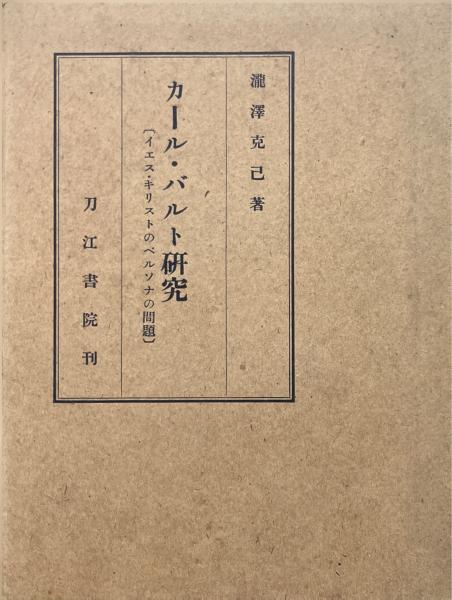 瀧澤克己著
カール・バルト研究
〔イエス・キリストのペルソナの問題〕
刀江書院刊